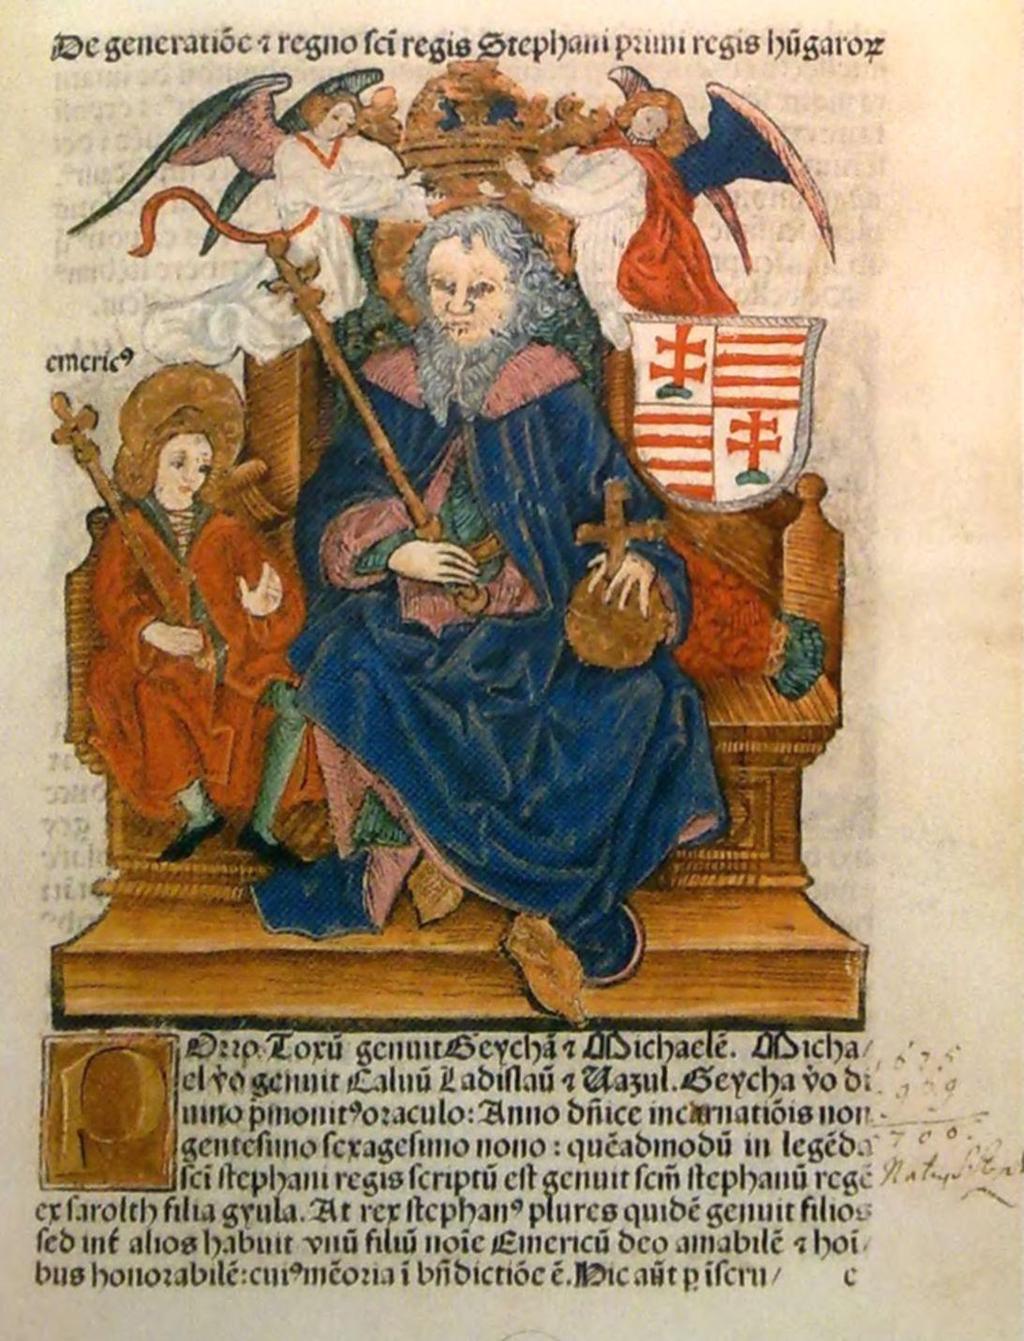 De generatiōe ⁊ regno sci regis Stephani primi regis hūgaroꝝ
emericꝰ
POrro Toxū genuit Geychā ⁊ Michaelē. Micha/
el ṽo genuit Caluū Ladislaū ⁊ Uazul. Geycha ṽo di
uino p̄monitꝰ oraculo: Anno dn̄ice incarnatiōis non
gentesimo sexagesimo nono: quēadmodū in legēda
sci stephani regis scriptū est genuit scm̄ stephanū regē
ex sarolth filia gyula. At rex stephanꝰ plures quidē genuit filios
sed int̄ alios habuit vnū filiū noīe Emericū deo amabilē ⁊ hoī/
bus honorabilē: cuiꝰ mēoria ī bn̄dictiōe ē. Hic aūt ꝑ iscru/ c
969
700.
Natus Step